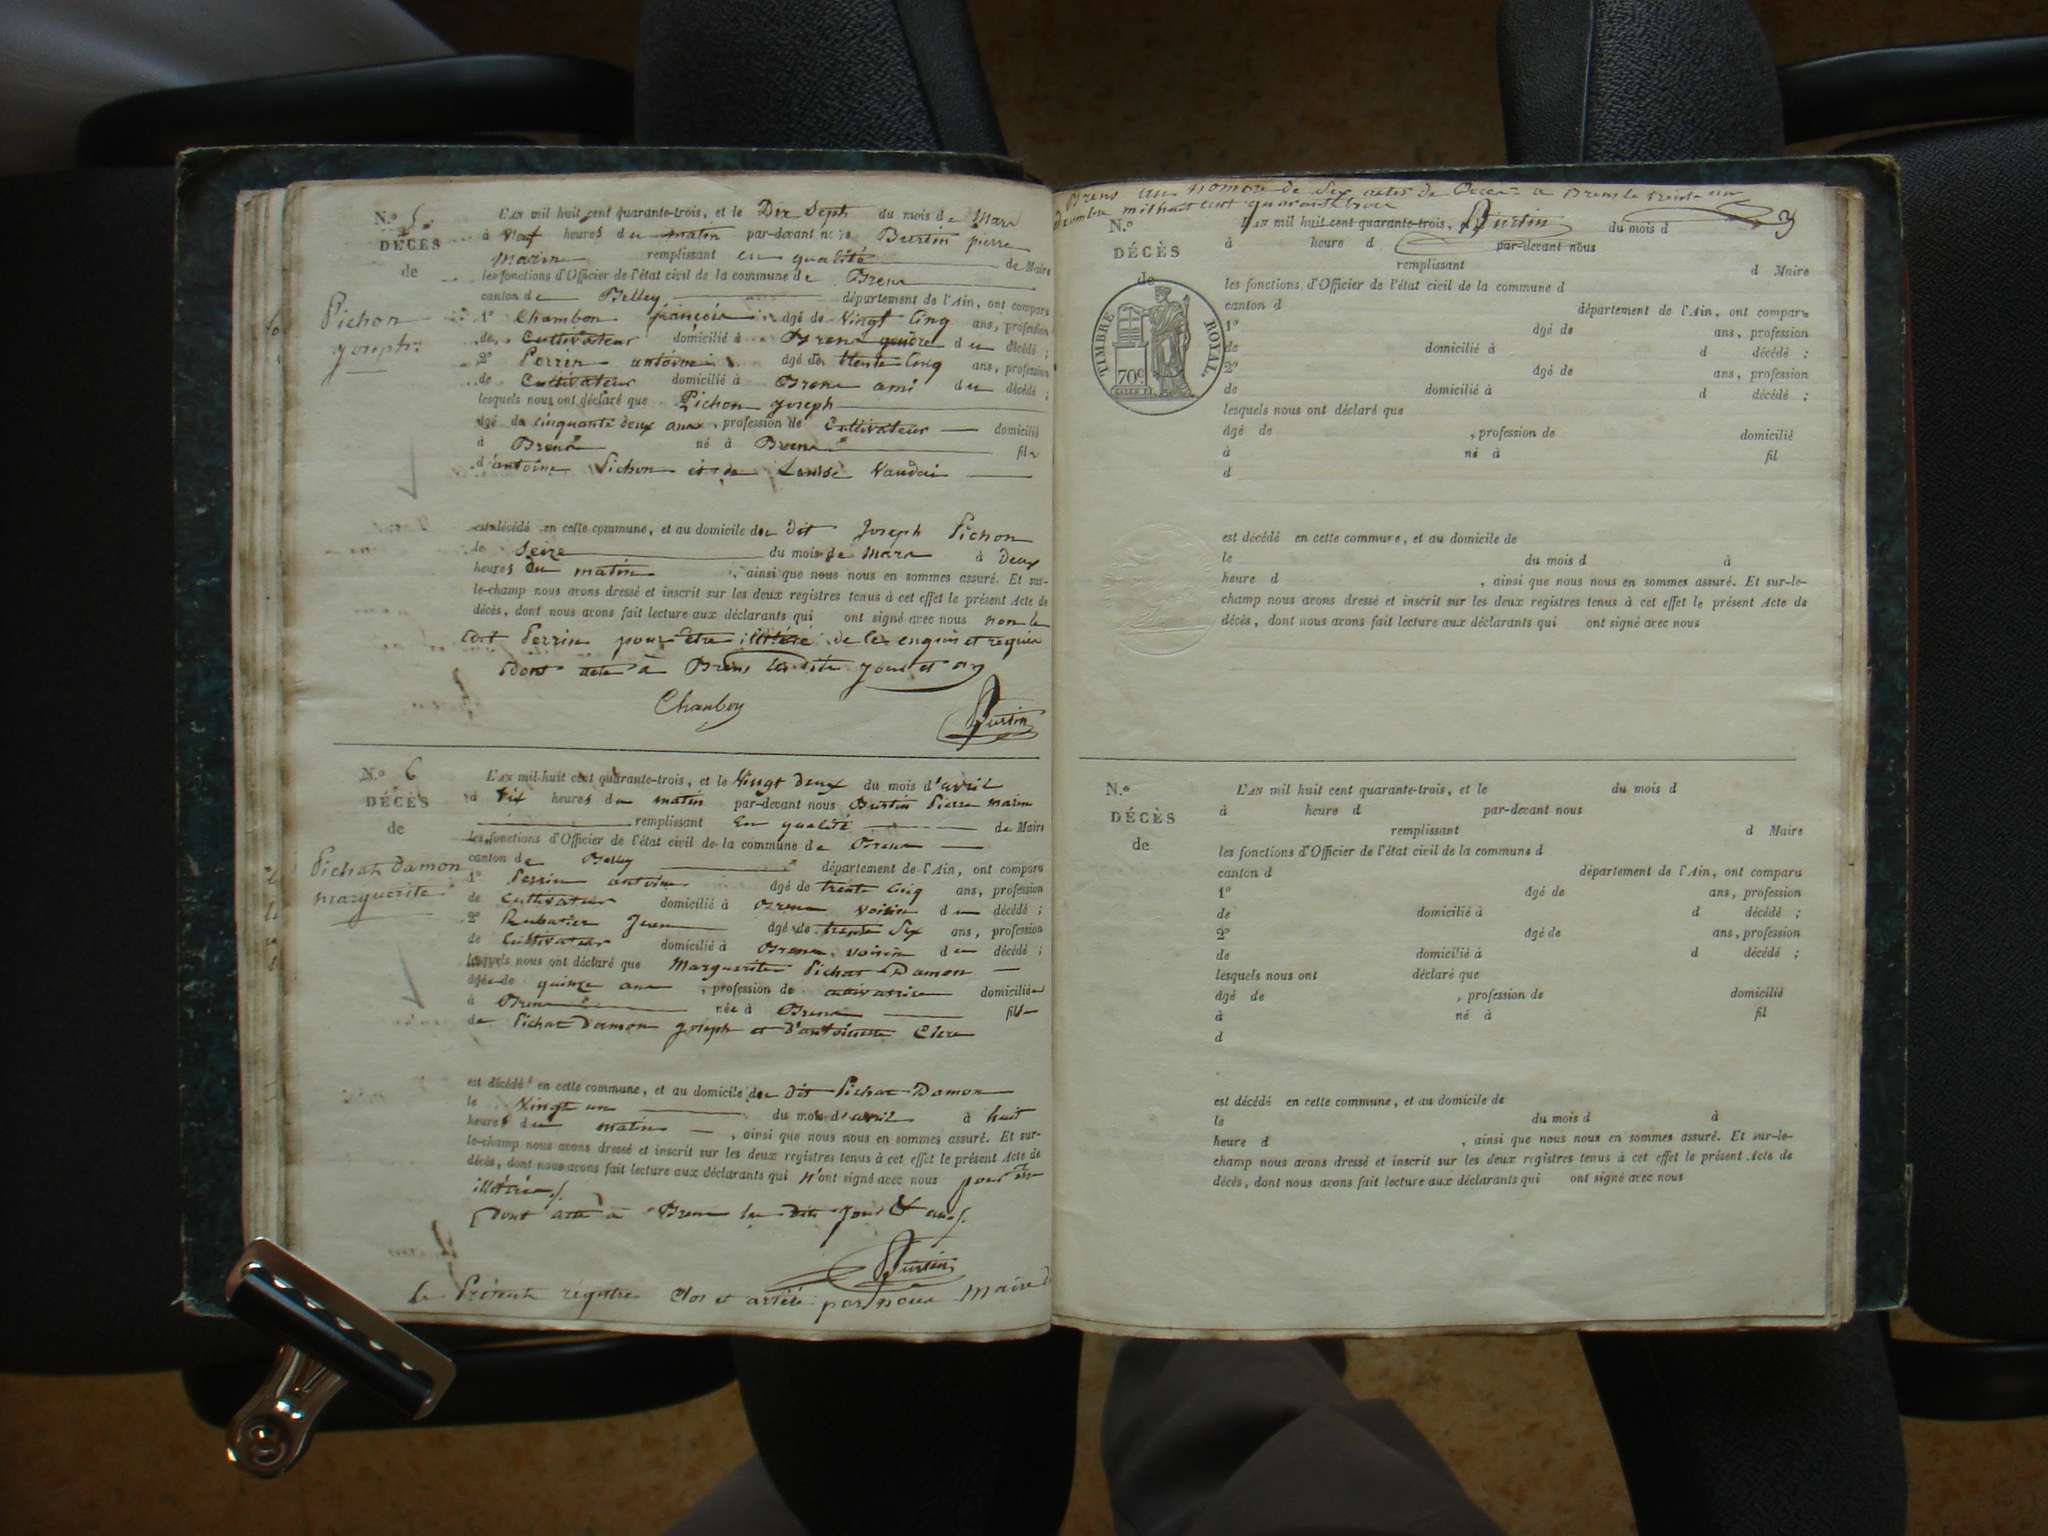 N.º 5. L'AN mil huit cent quarante-trois, et le Dix Sept du mois de Mars
DÉCÈS à Neuf heures du matin par-devant nous Burtin pierre
de
marin remplissant en qualité de Maire
les fonctions d'Officier de l'état civil de la commune de Brens
canton de Belley département de l'Ain, ont comparu
Pichon
joseph
1º Chambon françois âgé de Vingt Cinq ans, profession
de Cultivateur domicilié à Brens gendre du décédé ;
2º Perrin antoine âgé de trente Cinq ans, profession
de Cultivateur domicilié à Brens ami du décédé ;
lesquels nous ont déclaré que Pichon joseph
âgé de cinquante deux ans, profession de Cultivateur domicilié
à Brens né à Brens fils
d'antoine Pichon et de Louise Vaudai
est décédé en cette commune, et au domicile du dit Joseph Pichon
le Seize du mois de Mars à Deux
heures du matin, ainsi que nous nous en sommes assuré. Et sur-
le-champ nous avons dressé et inscrit sur les deux registres tenus à cet effet le présent Acte de
décès, dont nous avons fait lecture aux déclarants qui ont signé avec nous non le
dit Perrin pour être illitéré de ce enquis et requis
dont acte à Brens les dits jour et an
Chanbon
Burtin
N.º 6 L'AN mil huit cent quarante-trois, et le Vingt deux du mois d'avril
DÉCÈS à Dix heures du matin par-devant nous Burtin Pierre marin
de
remplissant En qualité de Maire
les fonctions d'Officier de l'état civil de la commune de Brens
canton de Belley département de l'Ain, ont comparu
Pichat Damon
marguerite
1º Perrin antoine âgé de trente Cinq ans, profession
de Cultivateur domicilié à Brens voisin du décédé ;
2º Rubatier Jean âgé de trente Six ans, profession
de Cultivateur domicilié à Brens voisin du décédé ;
lesquels nous ont déclaré que Marguerite Pichat Damon
âgée de quinze ans, profession de cultivatrice domiciliée
à Brens née à Brens fille
de Pichat Damon joseph et D'antoinette Clerc
est décédé en cette commune, et au domicile du dit Pichat Damon
le Vingt un du mois d'avril à huit
heures du matin, ainsi que nous nous en sommes assuré. Et sur-
le-champ nous avons dressé et inscrit sur les deux registres tenus à cet effet le présent Acte de
décès, dont nous avons fait lecture aux déclarants qui n'ont signé avec nous pour être
illétérés
Dont acte à Brens les dits Jour & an
Burtin
le Présent régistre Clos et arrêté par nous Maire de
Brens au nombre de Six actes de Décès à Brens le trente un
décembre mil huit cent quarante trois
Burtin
N.º L'AN mil huit cent quarante-trois, du mois d
DÉCÈS à heure d par-devant nous
de
remplissant d Maire
les fonctions d'Officier de l'état civil de la commune d
canton d département de l'Ain, ont comparu
TIMBRE ROYAL.
70c
1º âgé de ans, profession
de domicilié à d décédé ;
2º âgé de ans, profession
de domicilié à d décédé ;
lesquels nous ont déclaré que
âgé de , profession de domicilié
à né à fil
d
est décédé en cette commune, et au domicile de
le du mois d à
heure d , ainsi que nous nous en sommes assuré. Et sur-le-
champ nous avons dressé et inscrit sur les deux registres tenus à cet effet le présent Acte de
décès, dont nous avons fait lecture aux déclarants qui ont signé avec nous
N.º L'AN mil huit cent quarante-trois, et le du mois d
DÉCÈS à heure d par-devant nous
de
remplissant d Maire
les fonctions d'Officier de l'état civil de la commune d
canton d département de l'Ain, ont comparu
1º âgé de ans, profession
de domicilié à d décédé ;
2º âgé de ans, profession
de domicilié à d décédé ;
lesquels nous ont déclaré que
âgé de , profession de domicilié
à né à fil
d
est décédé en cette commune, et au domicile de
le du mois d à
heure d , ainsi que nous nous en sommes assuré. Et sur-le-
champ nous avons dressé et inscrit sur les deux registres tenus à cet effet le présent Acte de
décès, dont nous avons fait lecture aux déclarants qui ont signé avec nous